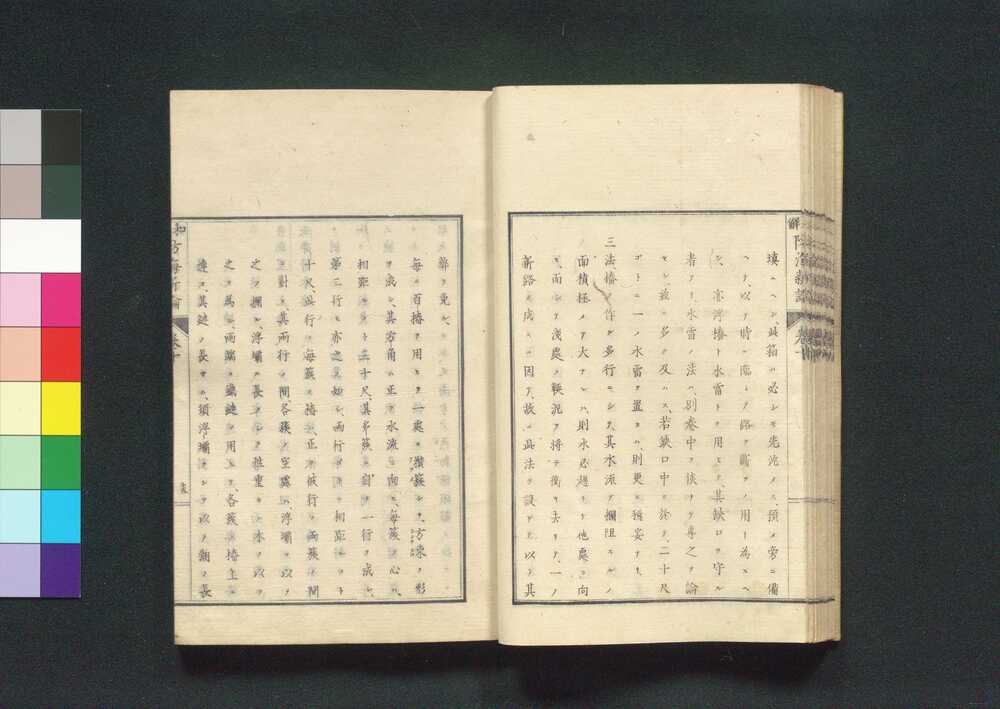 填ヘシ此箱ハ必シモ先沈メス預メ旁ニ備
ヘテ、以テ時ニ臨ミテ路ヲ斷ツノ用ト為スヘ
シ、塞浮樁ト水雷トヲ用ヒテ、其缺口ヲ守ル
者アリ、水雷ノ法ハ別卷中ヲ俟テ專之ヲ論
セン、茲ニ多ク及ハス、若缺口中ニ於テ、二十尺
ゴトニ一ノ水雷ヲ置カハ則更ニ穩妥ナリ、
三法樁ヲ作ル多行ニシテ、其水流ヲ攔阻スルノ
面積極メテ大ナレハ、則水必趨リテ他處ニ向
ヒ、而シテ淺處ノ輭泥ヲ將テ衝キ去リテ、一ノ
新路ヲ成スニ因テ、故ニ此法ヲ設ケテ、以テ其
弊ヲ免ル、
每ニ百樁ヲ用ヒテ一處ニ攢簇シテ、方柬ノ形
ヲ成シ、其方角ハ正ニ水流ニ向ヒ、每簇ノ心ハ、
相距ルコト三十尺、其多簇ハ自ラ一行ヲ成ス、
第二行モ亦之ノ如シ、兩行ハ相距ルコト
十尺、此行ノ每簇ノ樁、正ニ彼行ノ兩簇ノ間
ニ對シ、其兩行ノ間各簇ノ空處ハ、浮壩ヲ以テ
之ヲ攔ム、浮壩ハ長クシテ粗重ナル木ヲ以テ
之ヲ為ル、兩端ハ鐵鏈ヲ用ヒテ、各簇ノ樁上ニ
連ス、其鏈ノ長サハ、須浮壩ヲシテ以テ潮ノ長